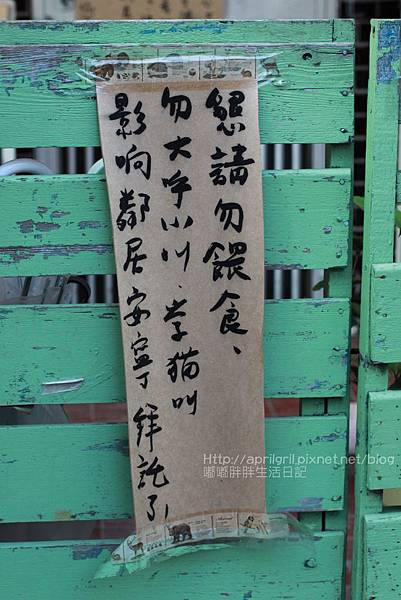 懇請勿餵食、
勿大呼小川、学猫叫
影响鄰居安寧拜託了
Http://aprilgril.pixnet.net/blog
嘟嘟胖胖生活日記